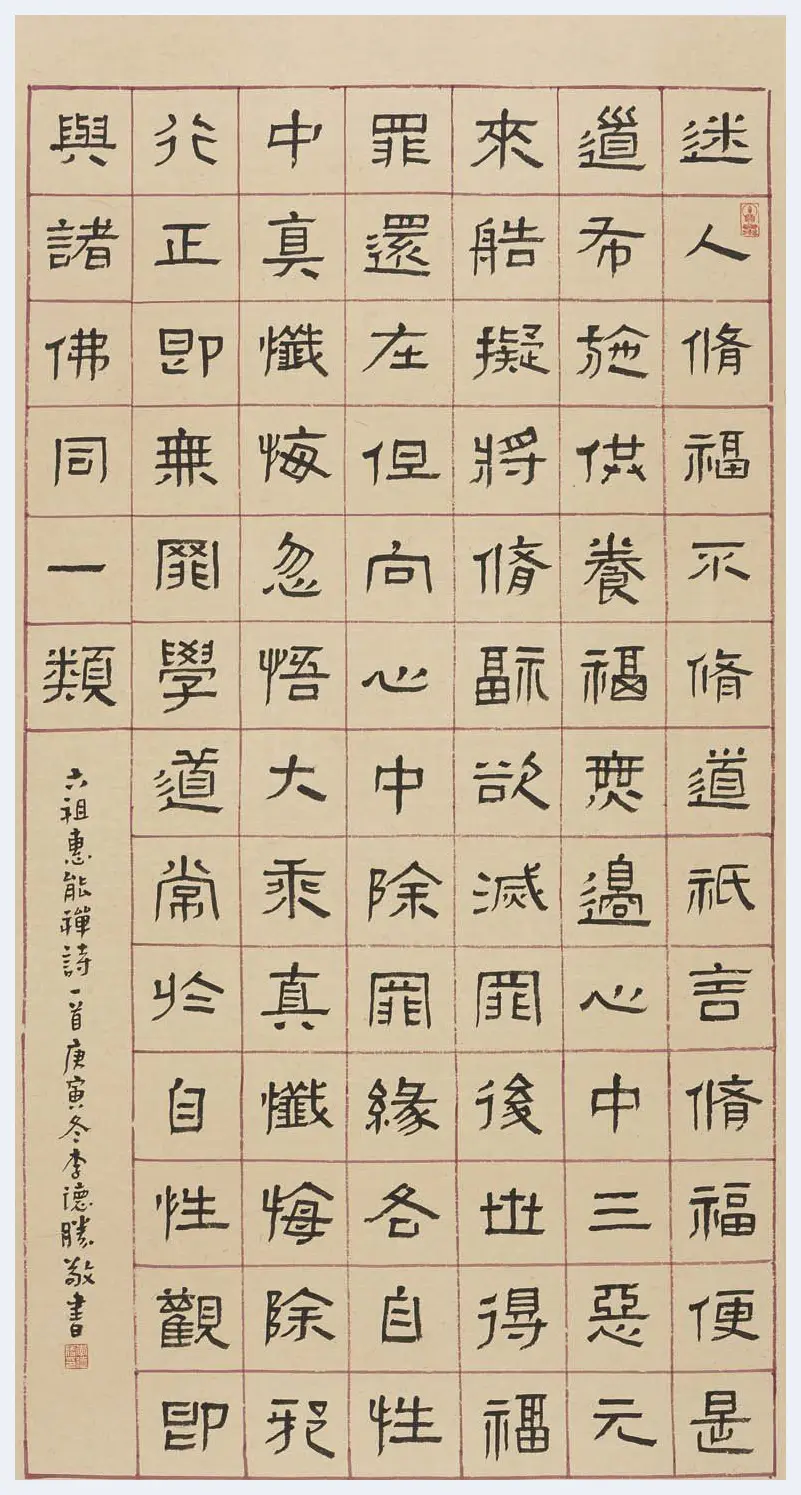 迷人脩福不脩道祇言脩福便是
道布施供養福無邊心中三惡元
來艁擬將脩福欲滅罪後世得福
罪還在但向心中除罪緣各自性
中真懺悔忽悟大乘真懺悔除邪
行正即無罪學道常於自性觀即
與諸佛同一類
六祖惠能禪詩一首庚寅冬李德勝敬書